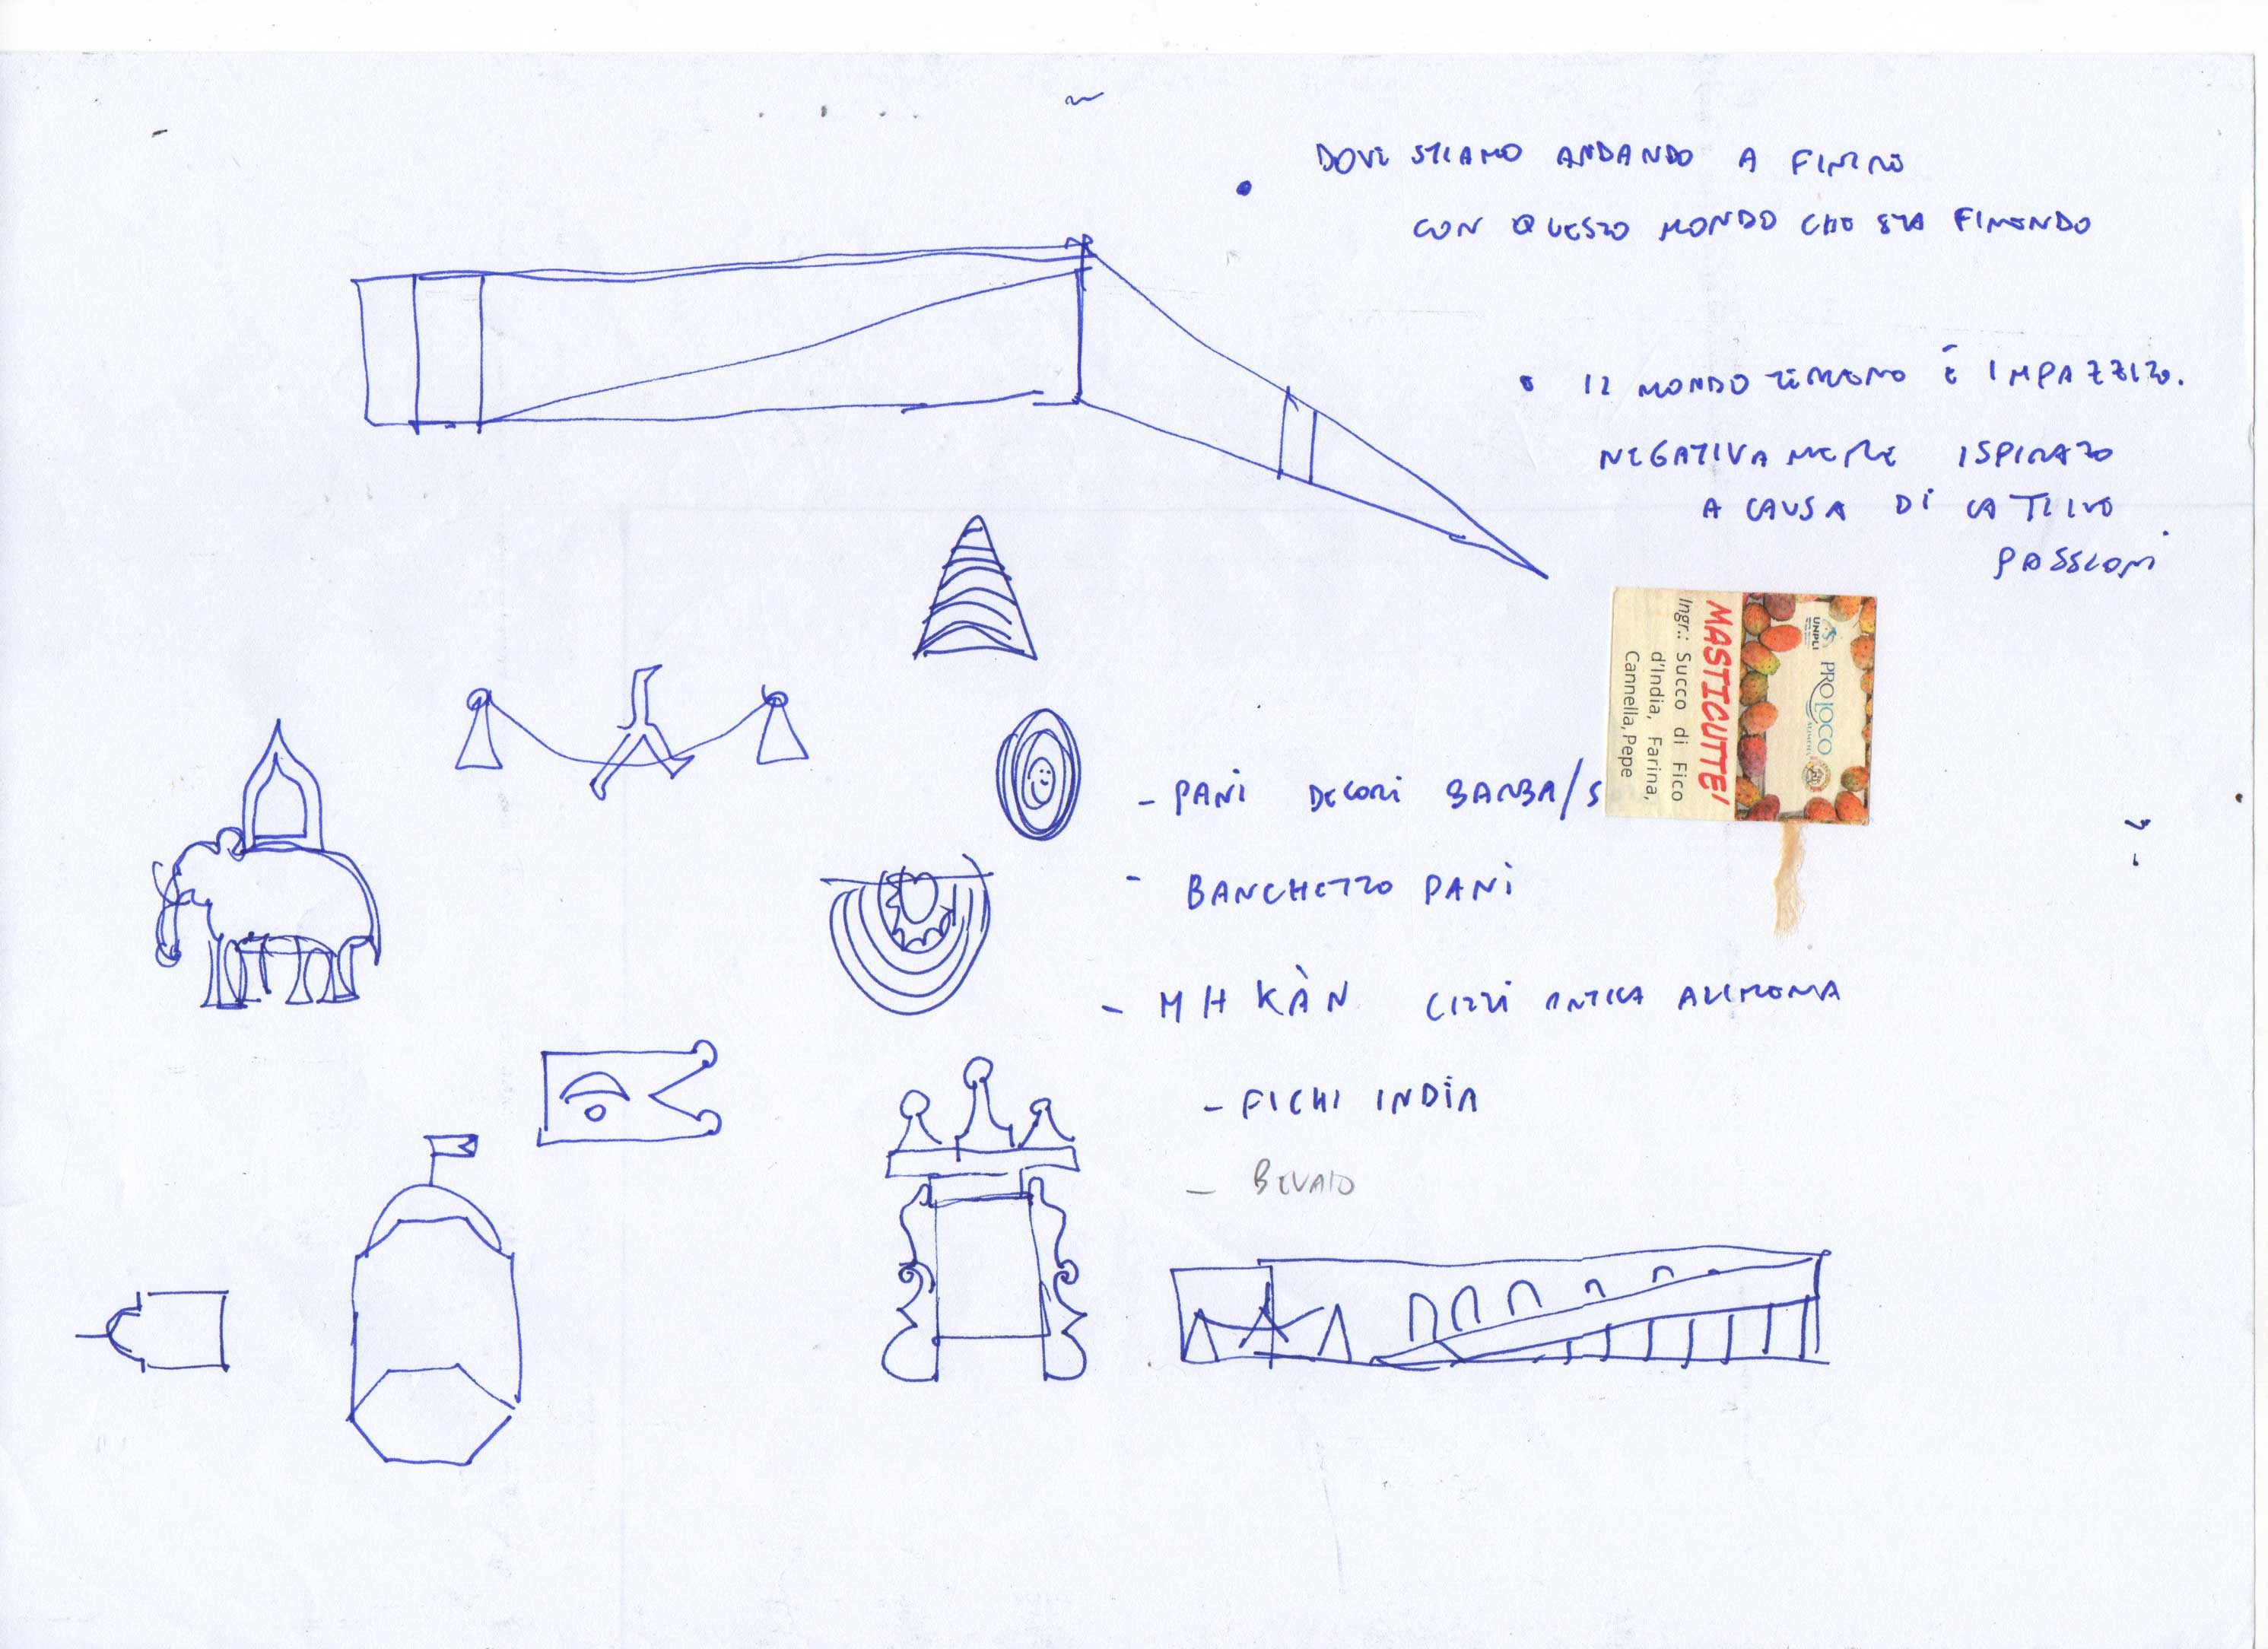 DOVE STIAMO ANDANDO A FINIRE
CON QUESTO MONDO CHE STA FINENDO
IL MONDO TERRENO È IMPAZZITO.
NEGATIVAMENTE ISPIRATO
A CAUSA DI CATTIVE
PASSIONI
UNPLI
PRO LOCO
MASTICUTTE'
Ingr.: Succo di Fico
d'India, Farina,
Cannella, Pepe
- PANI DECORI BARBA/S
- BANCHETTO PANI
- MH KÀN ANTICA
- FICHI INDIA
- BEVAIO